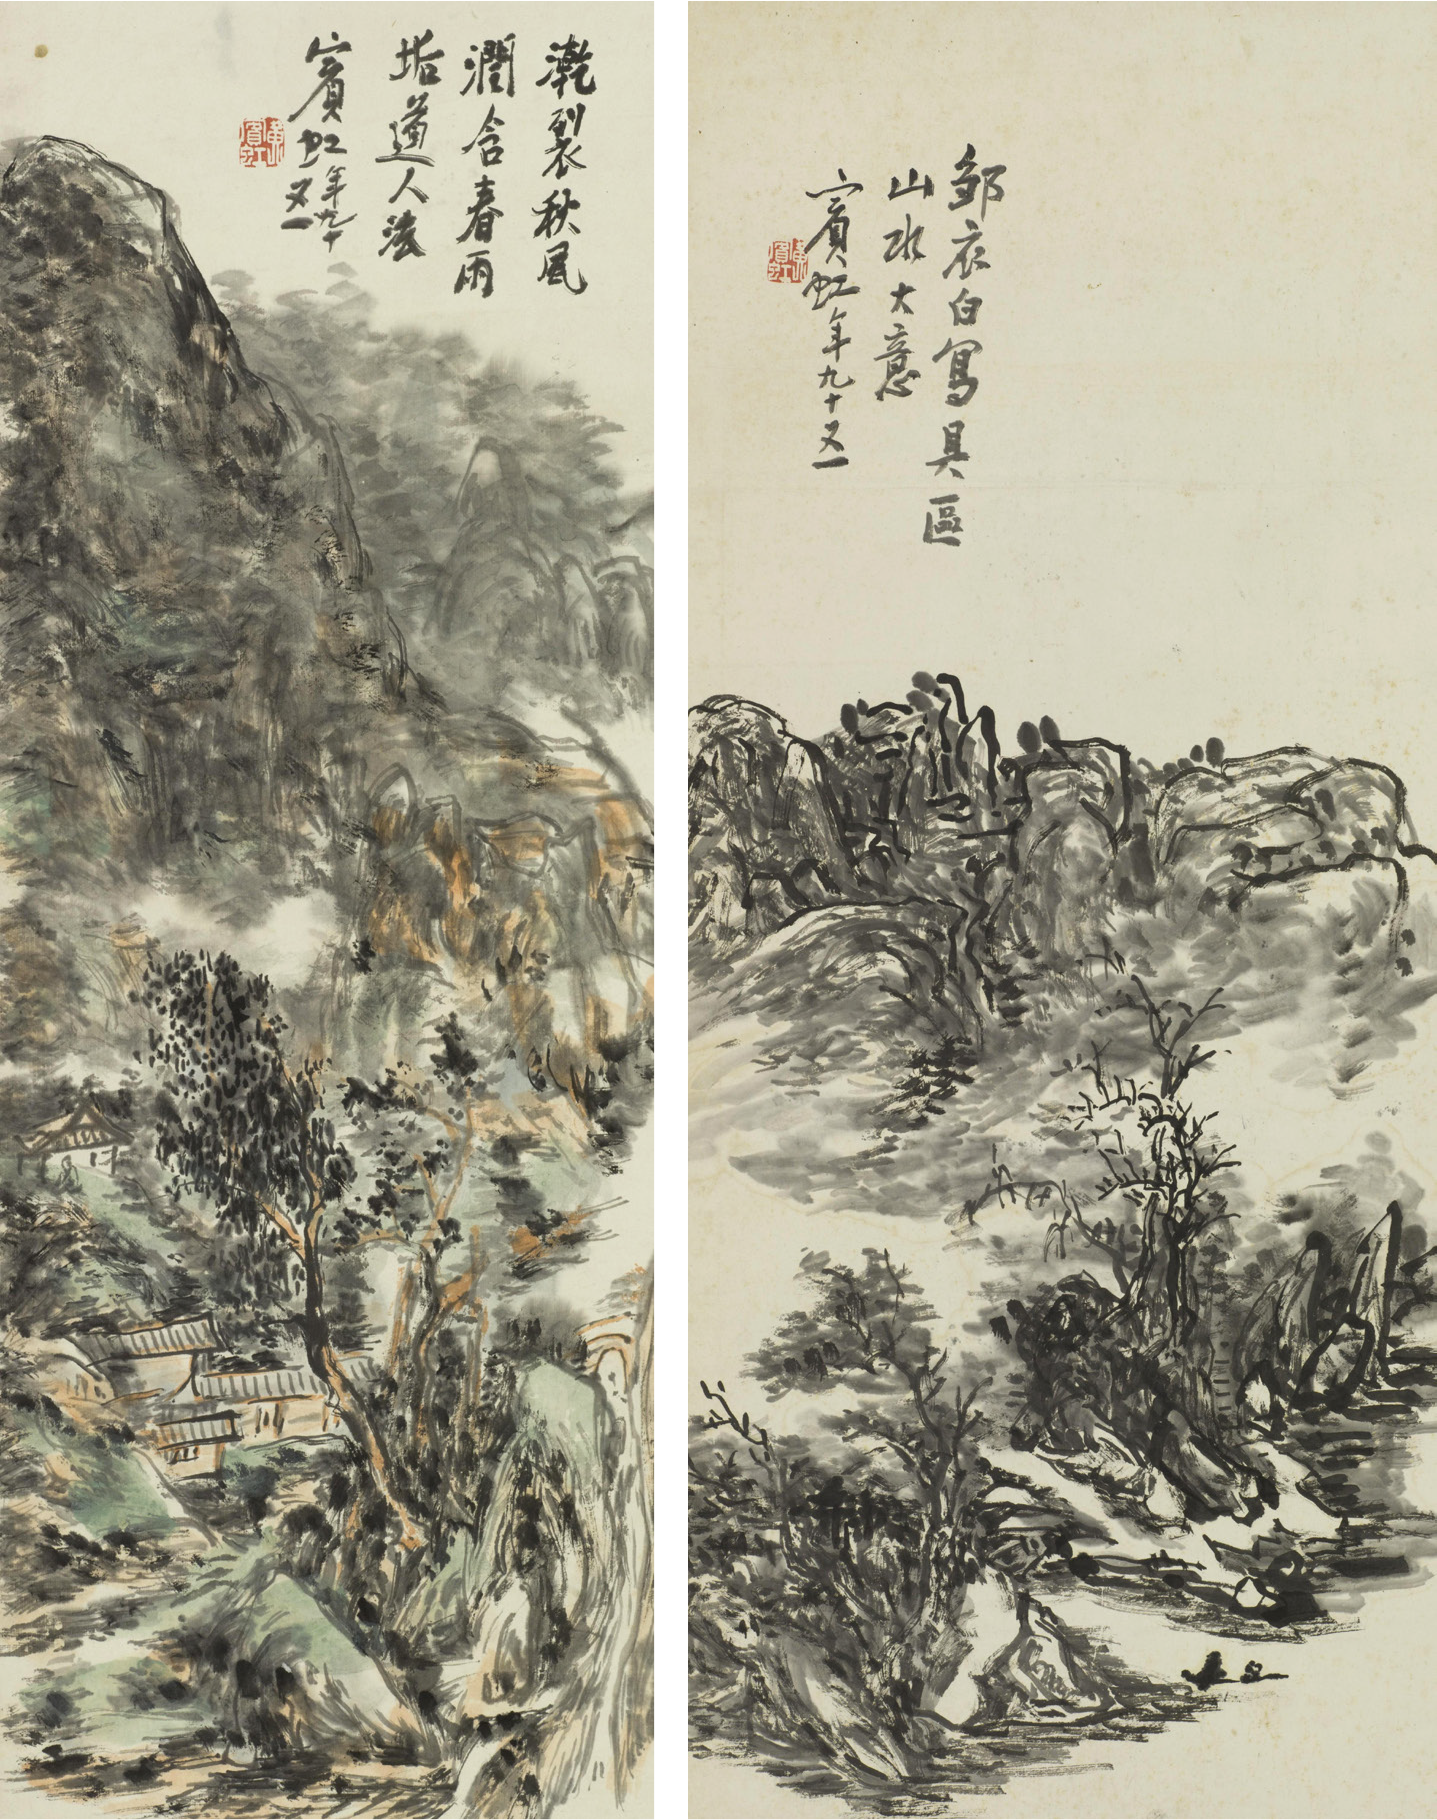 乾裂秋風
潤含春雨
垢道人法
賓虹年九十
又一
黃賓虹
鄒衣白寫具區
山水大意
賓虹年九十又一
黃賓虹